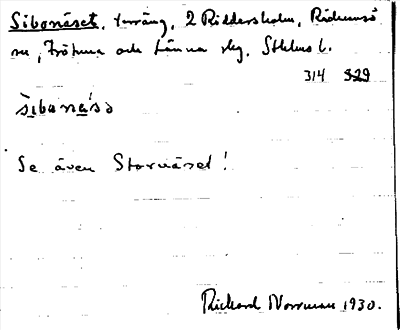 Sibonäset, terräng, 2 Riddersholm, Rådmansö
sn, Frötuna och Länna skg. Sthlms l.
314 329
sibonäsə
Se även Storanäset!
Rickard Norrman 1930.